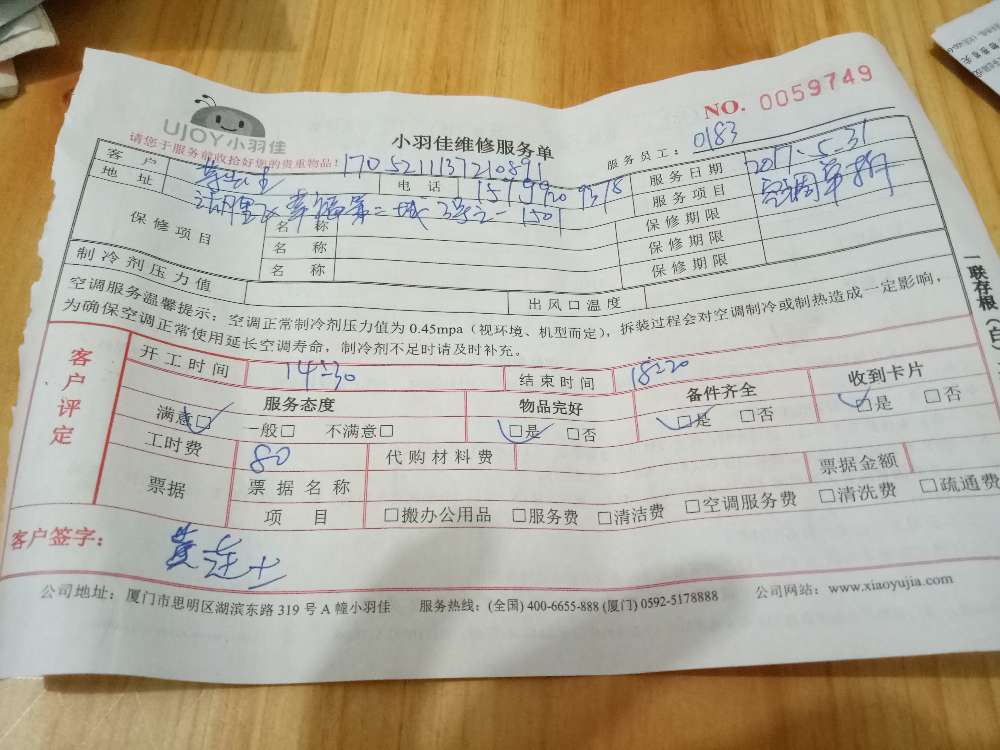 UJOY小羽佳
请您于服务前收拾好您的贵重物品!
小羽佳维修服务单
NO. 0059749
服务员工: 0183
170521137210891
客户 电话 服务日期 2017.5.31
地址 幸福第二城 3号之一1501 服务项目 空调单拆
保修项目 名称 保修期限
名称 保修期限
名称 保修期限
制冷剂压力值 出风口温度
空调服务温馨提示:空调正常制冷剂压力值为 0.45mpa(视环境、机型而定),拆装过程会对空调制冷或制热造成一定影响,
为确保空调正常使用延长空调寿命,制冷剂不足时请及时补充。
客户评定
开工时间 14:30 结束时间 18:20
服务态度 物品完好 备件齐全 收到卡片
满意□ 一般□ 不满意□ □是 □否 □是 □否 □是 □否
工时费 80 代购材料费
票据 票据名称 票据金额
项目 □搬办公用品 □服务费 □清洁费 □空调服务费 □清洗费 □疏通费
客户签字:
公司地址:厦门市思明区湖滨东路 319 号 A 幢小羽佳 服务热线:(全国) 400-6655-888 (厦门) 0592-5178888 公司网站:www.xiaoyujia.com
一联存根